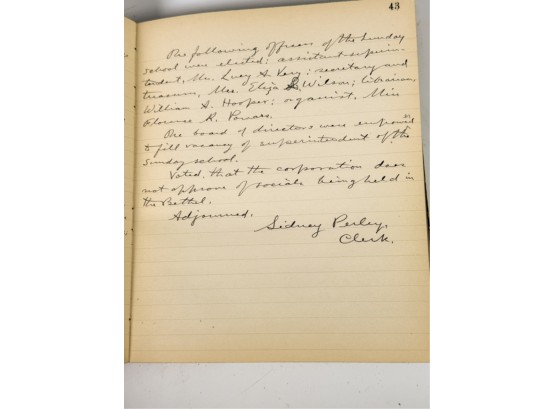 43
The following officers of the Sunday
school were elected: assistant superin-
tendent, Mrs. Lucy A. ; secretary and
treasurer, Mrs. Eliza S. Wilson; librarian,
William A. Hooper; organist, Miss
Florence A. Powers.
The board of directors were empowered
to fill vacancy of superintendent of the
Sunday school.
Voted, that the corporation does
not approve of socials being held in
the Bethel.
Adjourned.
Sidney Perley,
Clerk.